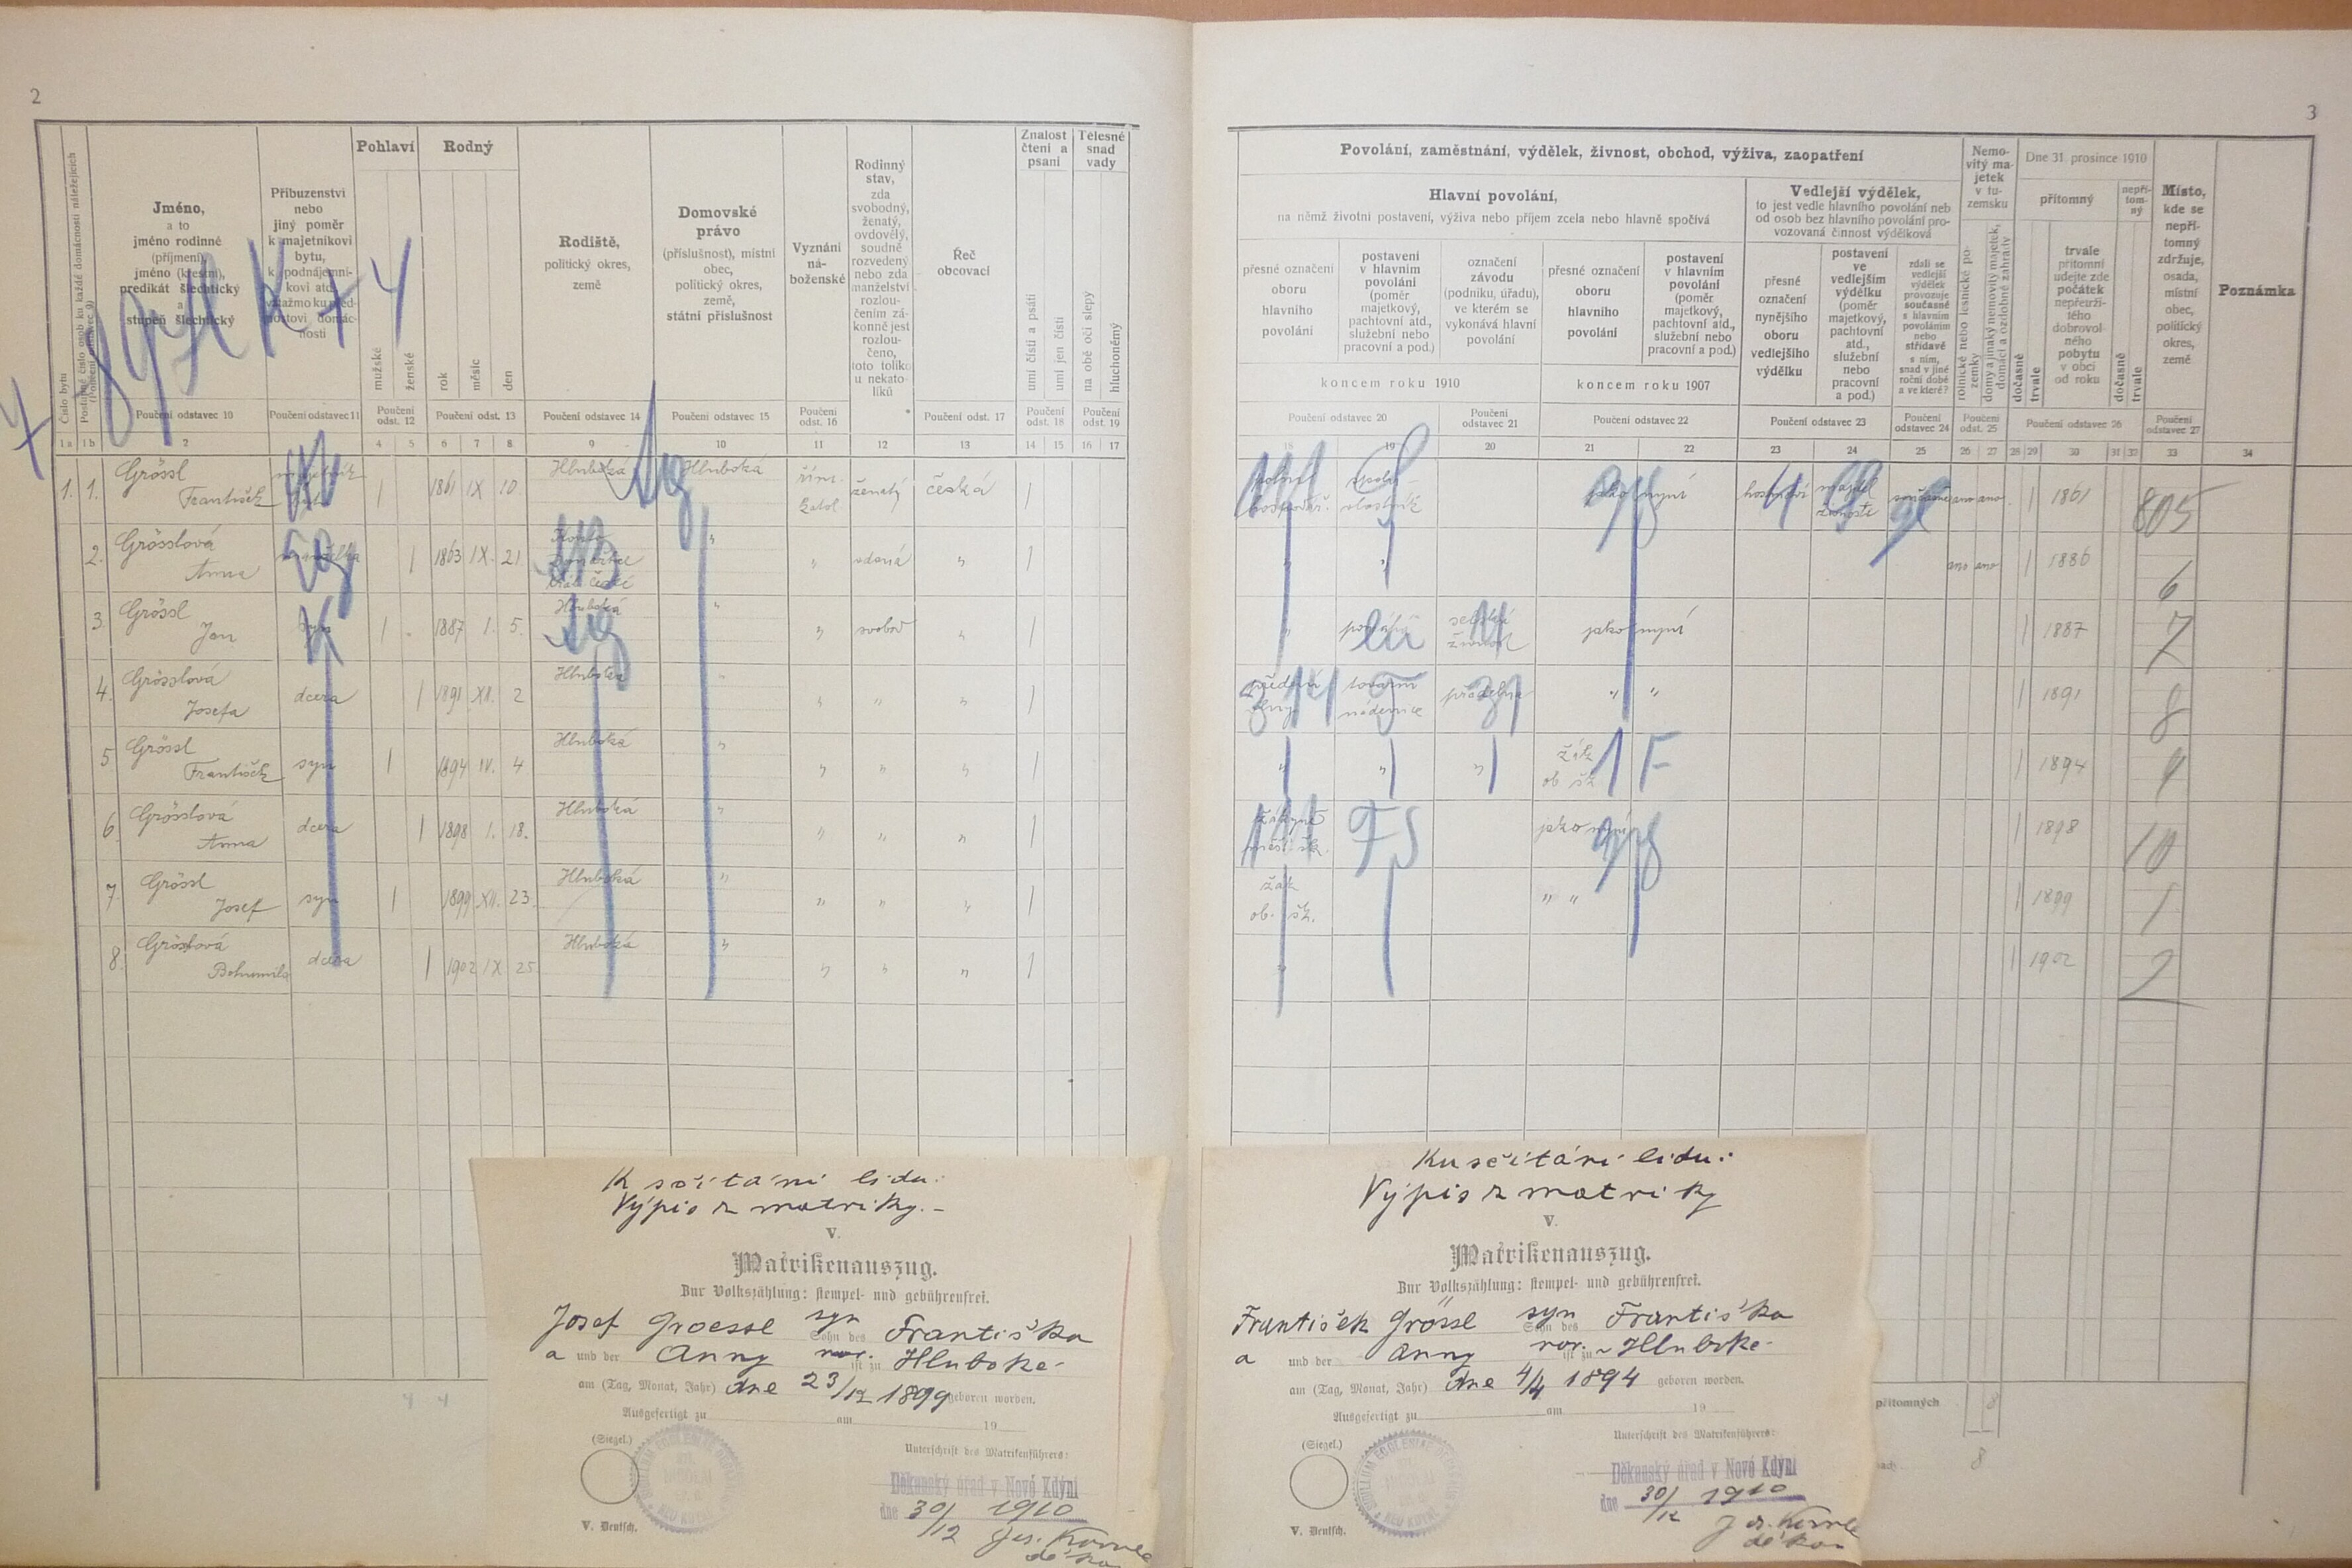 2
Pohlaví
Rodný
Znalost
čtení a
psaní
Tělesné
snad
vady
Číslo bytu
Jméno,
a to
jméno rodinné
(příjmení),
jméno (křestní),
predikát šlechtický
a
stupeň šlechtický
Příbuzenství
nebo
jiný poměr
k majetníkovi
bytu,
k podnájemní-
kovi atd.
nosti
mužské
ženské
rok
měsíc
den
Rodiště,
politický okres,
země
Domovské
právo
(příslušnost), místní
obec,
politický okres,
země,
státní příslušnost
Vyznání
ná-
boženské
Rodinný
stav,
zda
svobodný,
ženatý,
ovdovělý,
soudně
rozvedený
nebo zda
manželství
rozlou-
čením zá-
konně jest
rozlou-
čeno,
toto toliko
u nekato-
líků
Řeč
obcovací
umí čísti a psáti
umí jen čísti
na obě oči slepý
hluchoněmý
Poučení odstavec 10
Poučení odstavec 11
Poučení
odst. 12
Poučení odst. 13
Poučení odstavec 14
Poučení odstavec 15
Poučení
odst. 16
Poučení odst. 17
Poučení
odst. 18
Poučení
odst. 19
1a 1b 2 4 5 6 7 8 9 10 11 12 13 14 15 16 17
1. 1. Grössl František 1 1861 IX 10 Hluboká Hluboká řím. katol. ženatý česká 1
2. Grösslová Anna manželka 1 1863 IX. 21 " " vdaná " 1
3. Grössl Jan syn 1 1887 1. 5. Hluboká " " svobod " 1
4. Grösslová Josefa dcera 1 1891 XII. 2 Hluboká " " " " 1
5 Grössl František syn 1 1894 IV. 4 Hluboká " " " " 1
6. Grösslová Anna dcera 1 1898 1. 18. Hluboká " " " " 1
7. Grössl Josef syn 1 1899 XII. 23. Hluboká " " " " 1
8. Grösslová Bohumila dcera 1 1902 IX 25. Hluboká " " " " 1
4 4
K sčítání lidu:
Výpis z matriky.-
V.
Matrikenauszug.
Zur Volkszählung: stempel- und gebührenfrei.
Josef Groessl syn Sohn des Františka
a und der Anny nar. ist zu Hluboké
am (Tag, Monat, Jahr) dne 23/12 1899 geboren worden.
Ausgefertigt zu am 19
(Siegel.)
Unterschrift des Matrikenführers:
Děkanský úřad v Nové Kdyni
dne 30/12 1910
děkan
V. Deutsch.
3
Povolání, zaměstnání, výdělek, živnost, obchod, výživa, zaopatření
Nemo-
vitý ma-
jetek
v tu-
zemsku
Dne 31. prosince 1910
přítomný
nepří-
tom-
ný
Místo,
kde se
nepří-
tomný
zdržuje,
osada,
místní
obec,
politický
okres,
země
Poznámka
Hlavní povolání,
na němž životní postavení, výživa nebo příjem zcela nebo hlavně spočívá
Vedlejší výdělek,
to jest vedle hlavního povolání neb
od osob bez hlavního povolání pro-
vozovaná činnost výdělková
přesné označení
oboru
hlavního
povolání
postavení
v hlavním
povolání
(poměr
majetkový,
pachtovní atd.,
služební nebo
pracovní a pod.)
označení
závodu
(podniku, úřadu),
ve kterém se
vykonává hlavní
povolání
přesné označení
oboru
hlavního
povolání
postavení
v hlavním
povolání
(poměr
majetkový,
pachtovní atd.,
služební nebo
pracovní a pod.)
přesné
označení
nynějšího
oboru
vedlejšího
výdělku
postavení
ve
vedlejším
výdělku
(poměr
majetkový,
pachtovní
atd.,
služební
nebo
pracovní
a pod.)
zdali se
vedlejší
výdělek
provozuje
současně
s hlavním
povoláním
nebo
střídavě
s ním,
snad v jiné
roční době
a ve které?
dočasně
trvale
trvale
přítomní
udejte zde
počátek
nepřetrži-
tého
dobrovol-
ného
pobytu
v obci
od roku
dočasně
trvale
koncem roku 1910
koncem roku 1907
Poučení odstavec 20
Poučení
odstavec 21
Poučení odstavec 22
Poučení odstavec 23
Poučení
odstavec 24
Poučení
odst. 25
Poučení odstavec 26
Poučení
odstavec 27
18 19 20 21 22 23 24 25 26 27 28 29 30 31 32 33 34
jako nyní ano ano 1 1861 805
" " ano ano 1 1886 6
" jako nyní 1 1887 7
" " 1 1891 8
" " " žák ob. šk. 1 F 1 1894 9
jako nyní 1 1898 10
žák ob. šk. " " 1 1899 1
" 1 1902 2
přítomných 8
8
Ku sčítání lidu:
Výpis z matriky
V.
Matrikenauszug.
Zur Volkszählung: stempel- und gebührenfrei.
František Grössl syn Sohn des Františka
a und der Anny nar. ist zu v Hluboké
am (Tag, Monat, Jahr) dne 4/4 1894 geboren worden.
Ausgefertigt zu am 19
(Siegel.)
Unterschrift des Matrikenführers:
Děkanský úřad v Nové Kdyni
dne 30/12 1910
děkan
V. Deutsch.